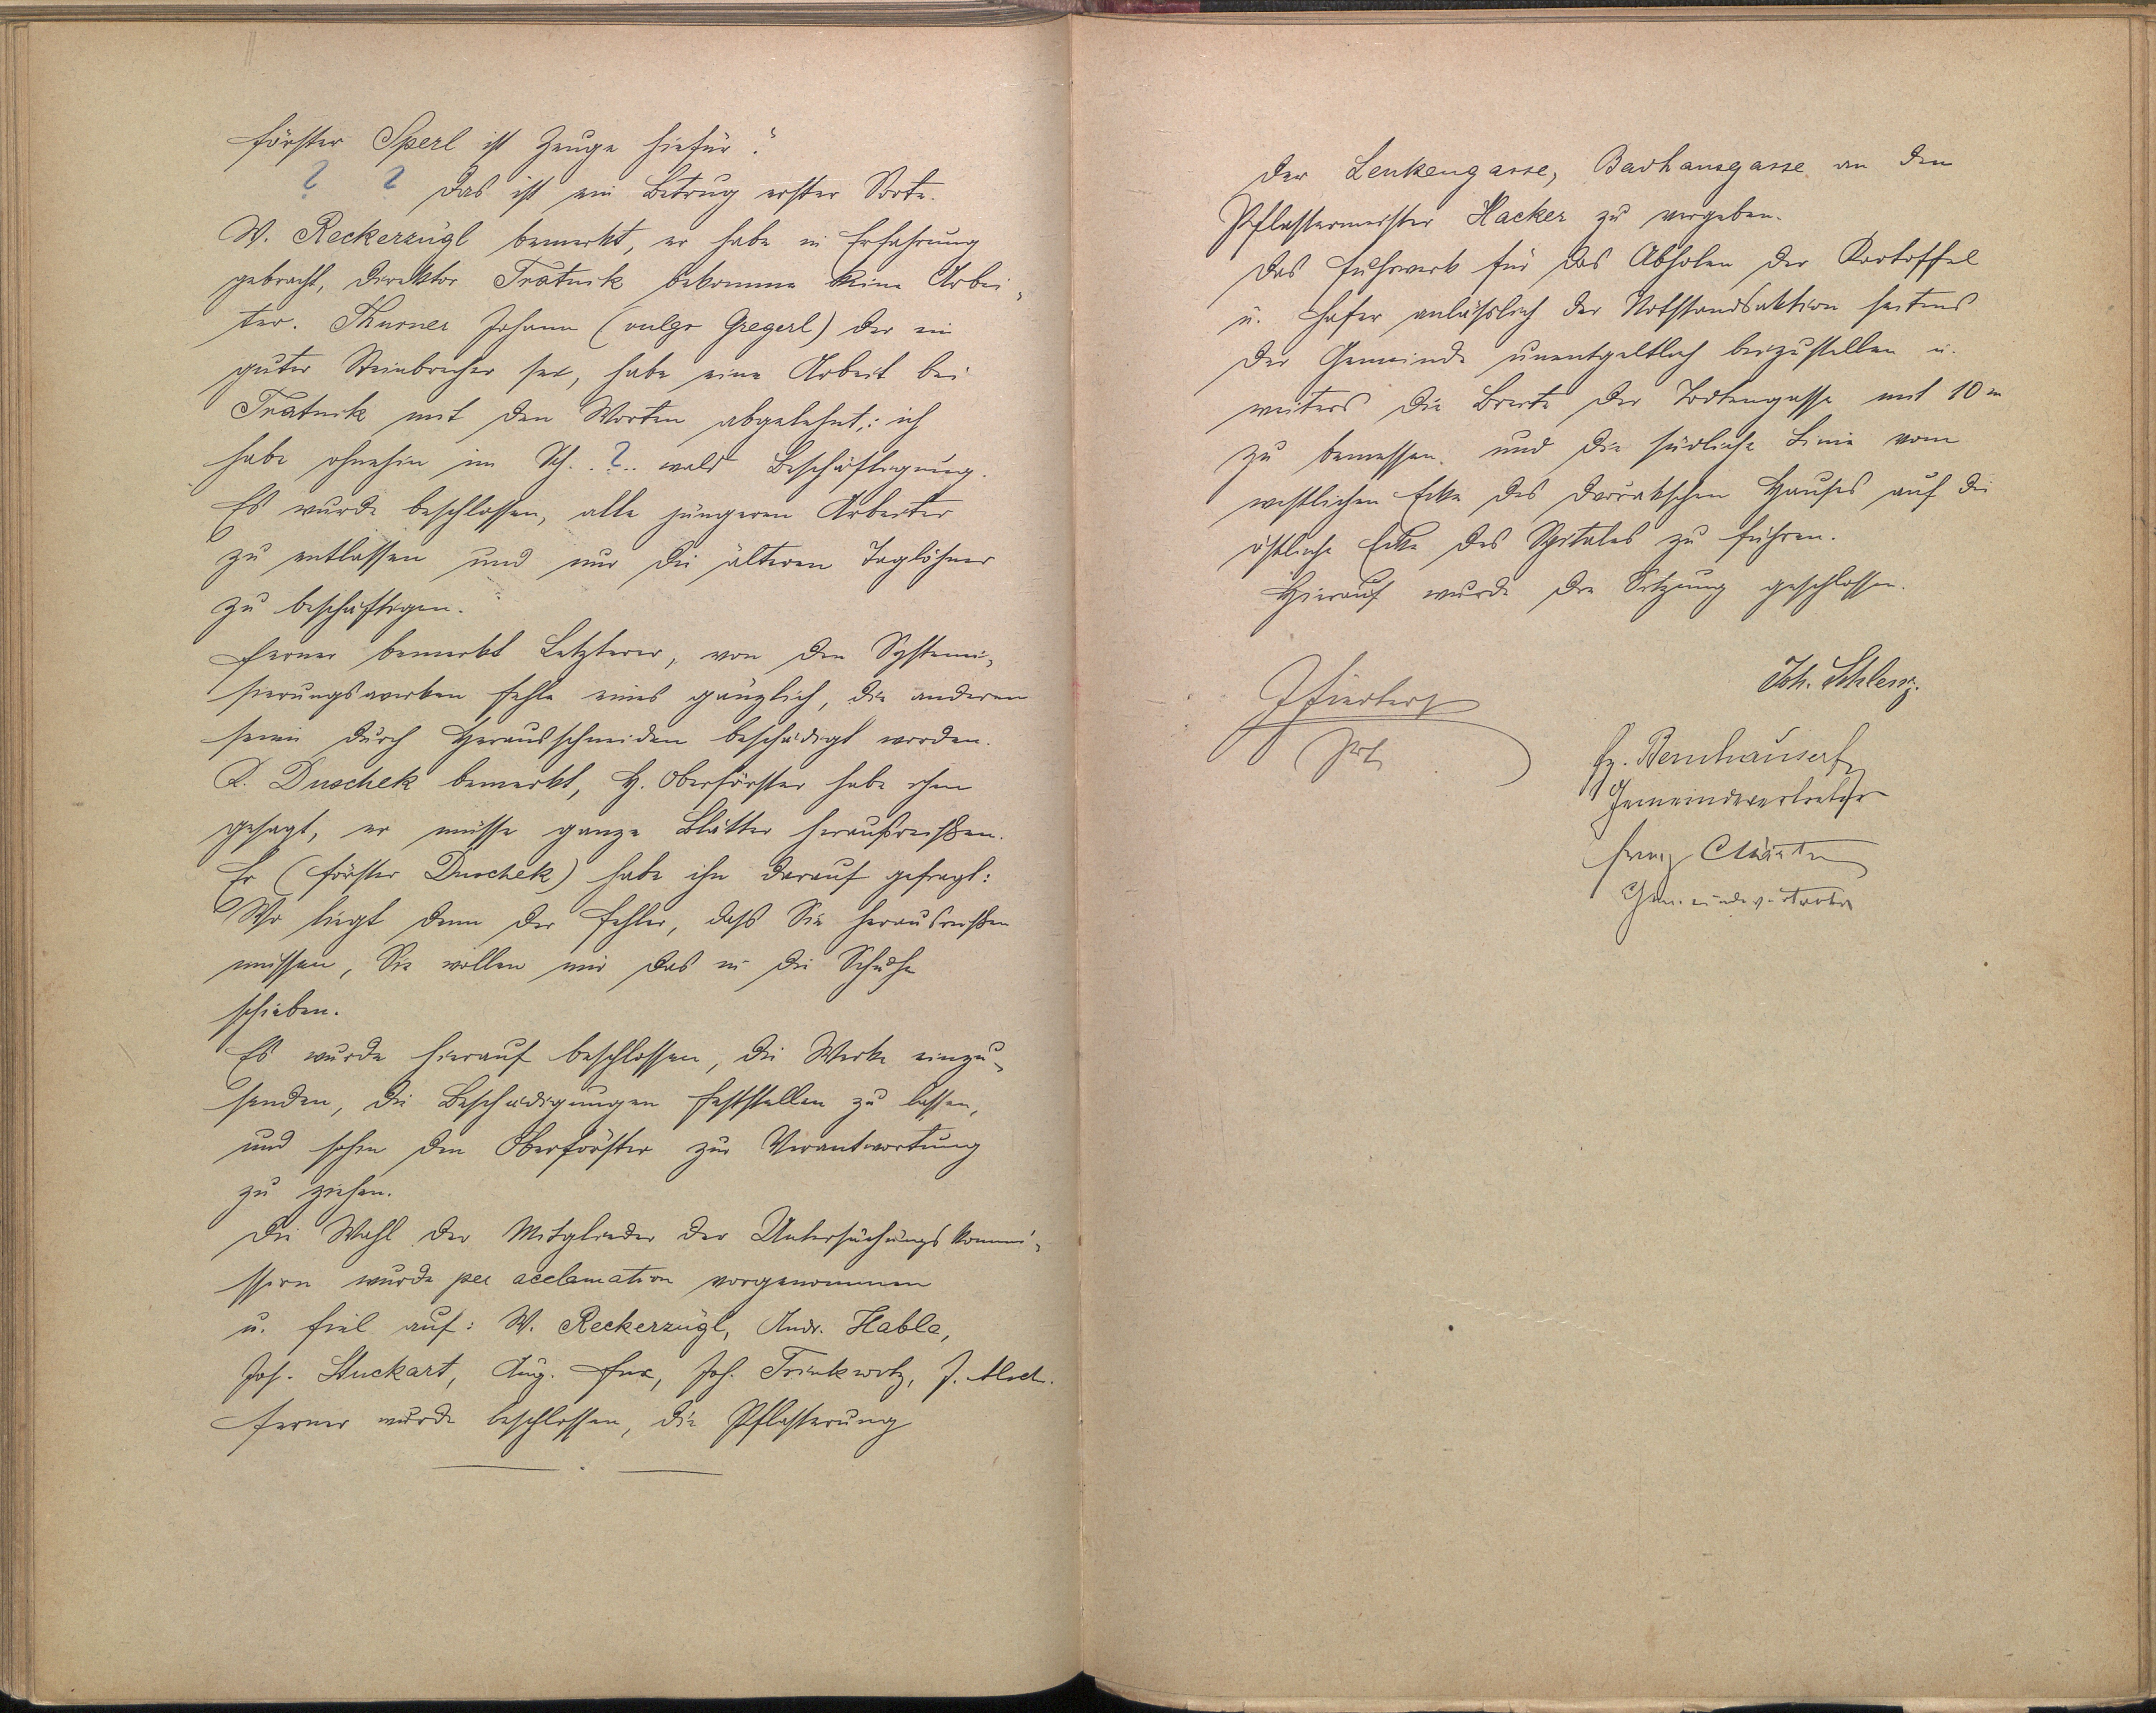 förster Sperl ist Zeuge hiefür."
? ? Das ist ein Betrug erster Sorte.
W. Reckerzügl bemerkt, er habe in Erfahrung
gebracht, Direktor Tratnik bekomme keine Arbei-
ter. Thurner Johann (vulgo Gregerl) der ein
guter Steinbrecher sei, habe eine Arbeit bei
Tratnik mit den Worten abgelehnt: ich
habe ohnehin im Sch..?.. wald Beschäftigung.
Es wurde beschlossen, alle jüngeren Arbeiter
zu entlassen und nur die älteren Taglöhner
zu beschäftigen.
Ferner bemerkt Letzterer, von den Systemi-
sierungswerken fehle eines gänzlich, die anderen
seien durch Herausschneiden beschädigt worden.
R. Duschek bemerkt, H. Oberförster habe ihm
gesagt, er müsse ganze Blätter herausreißen.
Er (Förster Duschek) habe ihn darauf gefragt:
Wo liegt denn der Fehler, daß Sie herausreißen
müssen, Sie wollen mir das in die Schuhe
schieben.
Es wurde hierauf beschlossen, die Werke einzu-
senden, die Beschädigungen feststellen zu lassen,
und sohin den Oberförster zur Verantwortung
zu ziehen.
Die Wahl der Mitglieder der Untersuchungskommi-
ssion wurde per acclamation vorgenommen
u. fiel auf: W. Reckerzügl, Andr. Habla,
Jos. Stuckart, Aug. Fux, Joh. Trinkwitz, J.
Ferner wurde beschlossen, die Pflasterung
der Lenkengasse, Badhausgasse an den
Pflastermeister Hacker zu vergeben.
Das Fuhrwerk für das Abholen der Kartoffel
u. Hafer anläßlich der Notstandsaktion seitens
der Gemeinde unentgeltlich beizustellen u.
weiters die Breite der Todtengasse mit 10 m
zu bemessen und die südliche Linie vom
westlichen Ecke des Hauses auf die
östliche Ecke des Spitales zu führen.
Hierauf wurde die Sitzung geschlossen.
Joh. Schlenz.
Gemeindevertreter
Franz
Gemeindevertreter